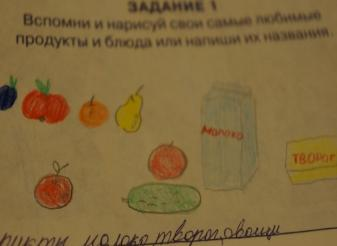 ЗАДАНИЕ 1
Вспомни и нарисуй свои самые любимые
продукты и блюда или напиши их названия.
Молоко
ТВОРОГ
молоко творог, овощи